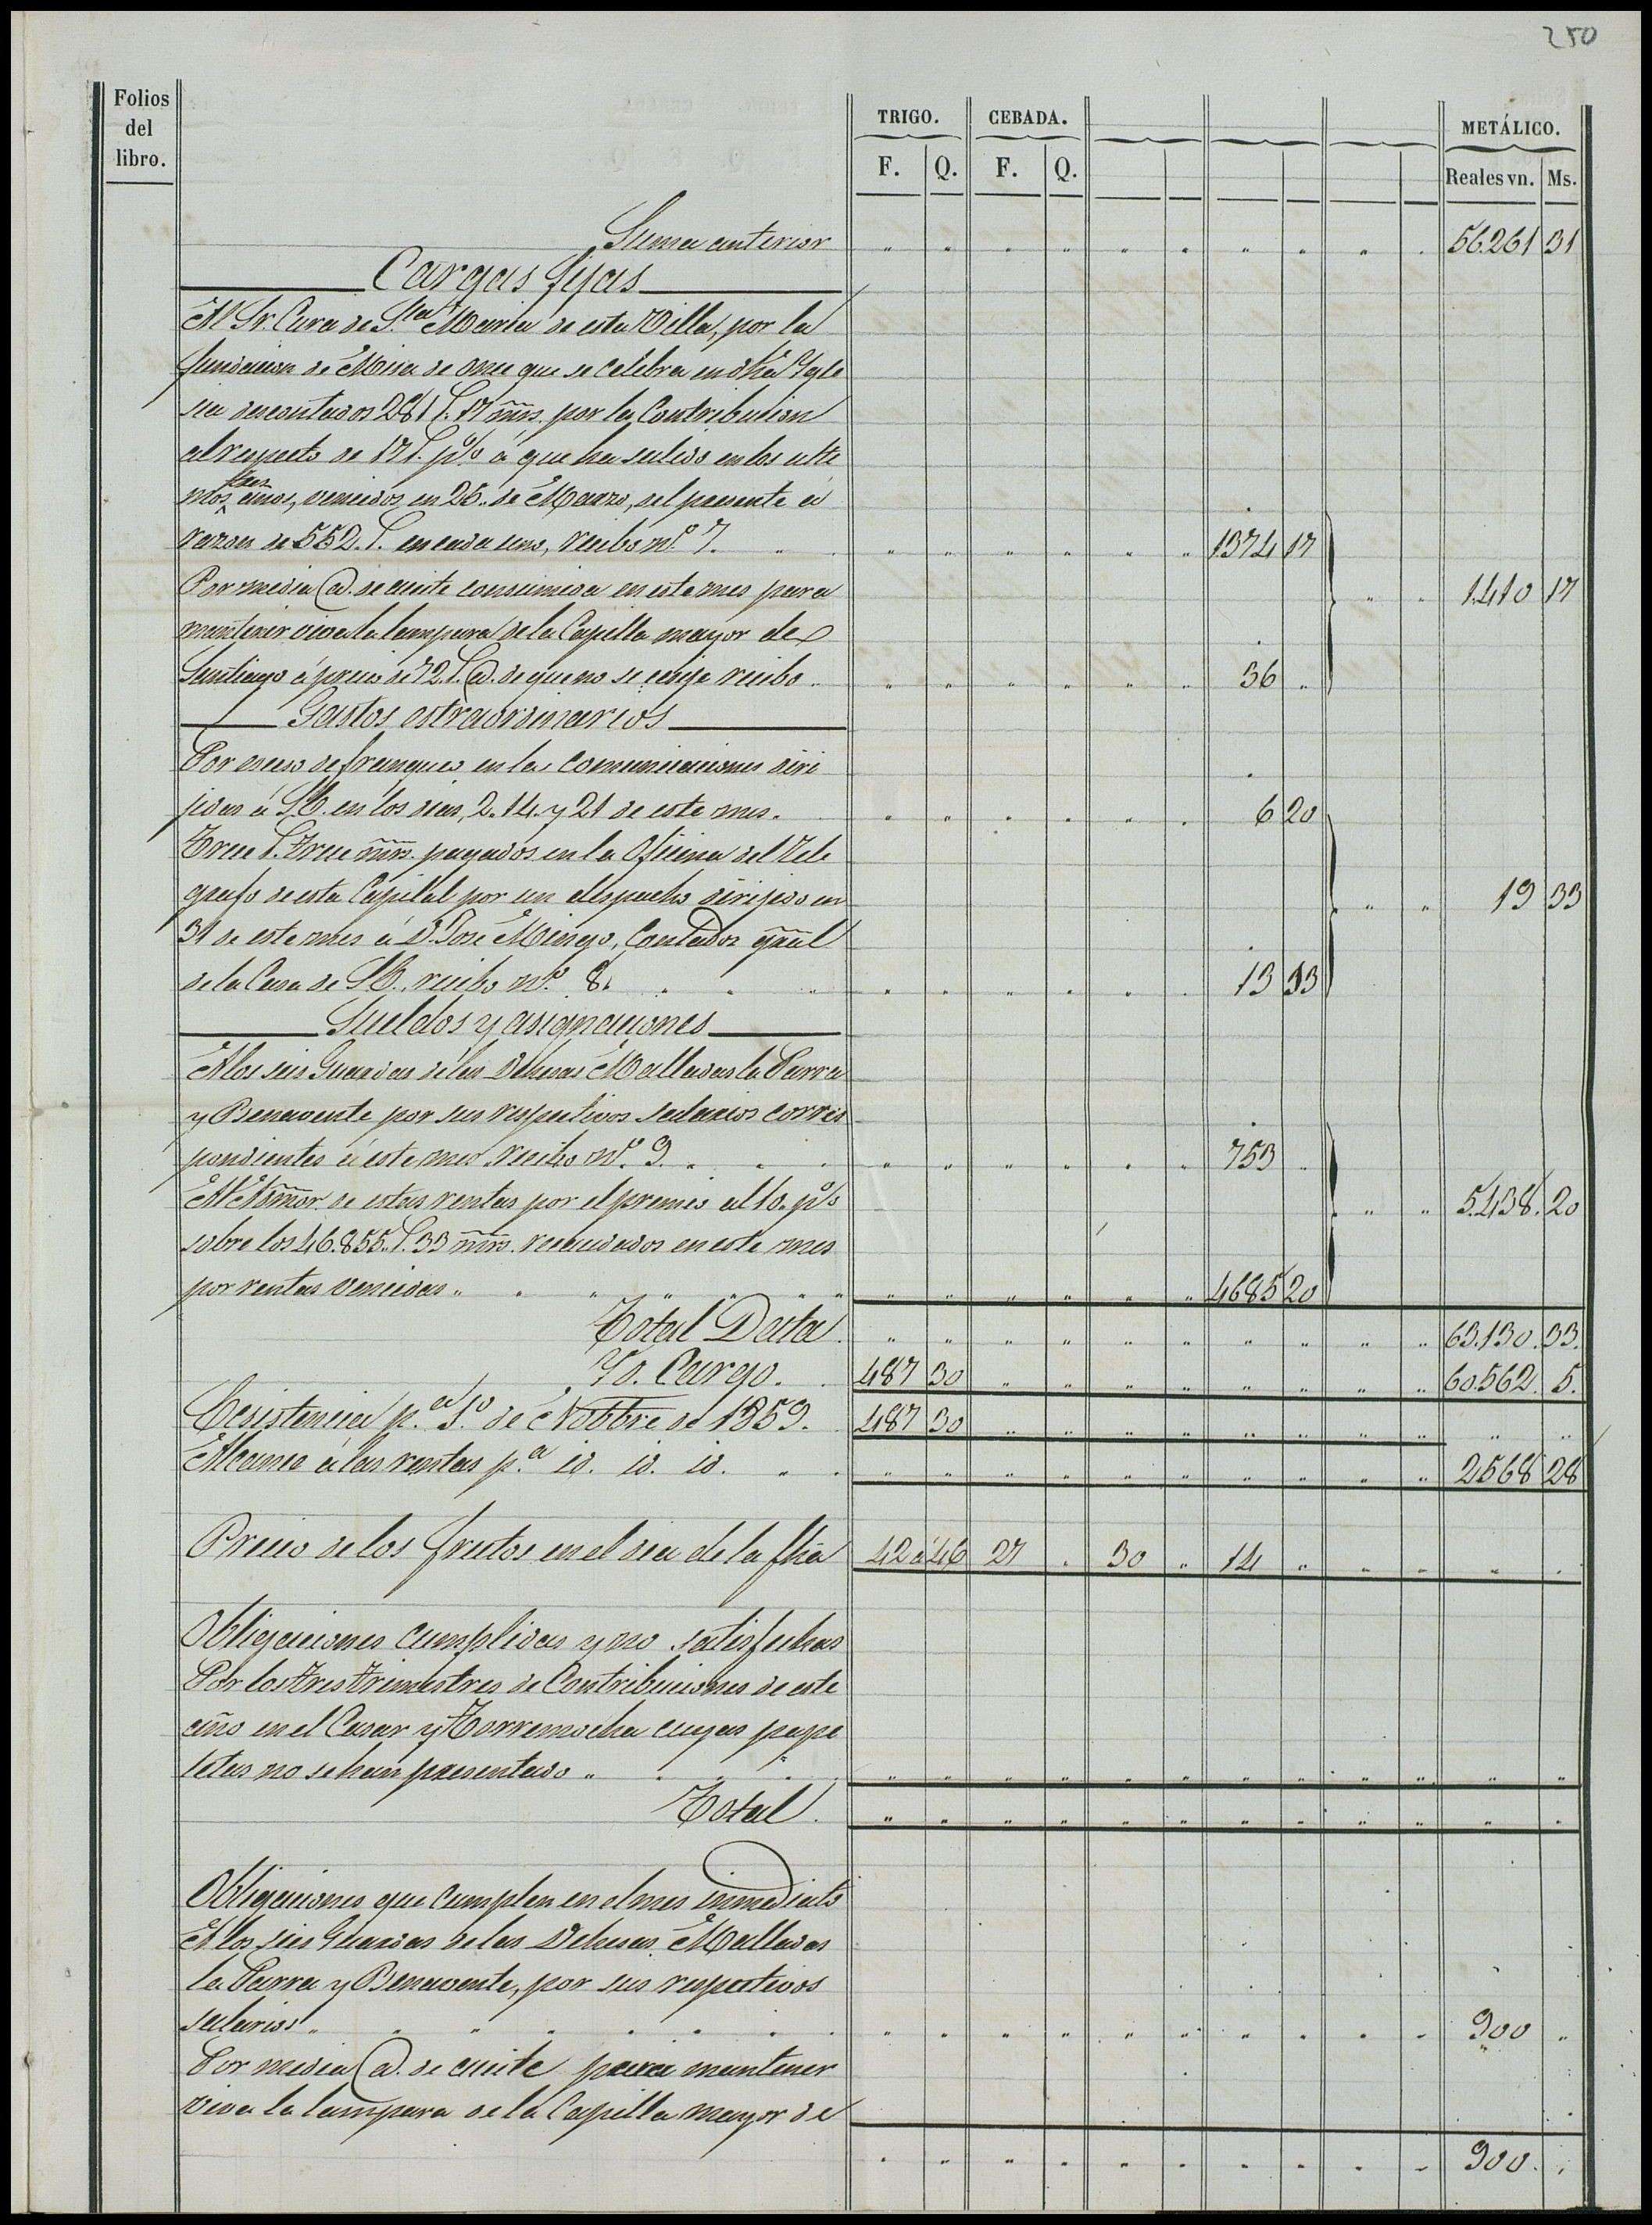 250
Folios del libro.
TRIGO. CEBADA. METÁLICO.
F. Q. F. Q. Reales vn. Ms.
Suma anterior " " " " " " " " " " 56.261 31
Cargas fijas
Al Sr. Cura de Sta Maria de esta Villa, por la
fundacion de Misa de once que se celebra en dha Ygle
sia descontados 281 r. 17 mrs. por la Contribucion
al respecto de 17 r. p% á que ha salido en los ulti
mos tres años, vencidos en 25. de Marzo, del presente á
razon de 552. r. en cada uno, recibo nº 7. " " " " " " 1374 17
Por media @. de aceite consumida en este mes para 1.410 17
mantener viva la lampara de la Capilla mayor de
Santiago á precio de 72. r. @. de que no se exije recibo. " " " " " " 36 "
Gastos estraordinarios
Por esceso de franqueo en las comunicaciones diri
jidas á S.E. en los dias, 2. 14. y 21 de este mes. " " " " " " 6 20
Trece r. trece mrs. pagados en la Oficina del Tele
grafo de esta Capital por un despacho dirijido en " " 19 33
31 de este mes á D. José Mingo, Contador gral
de la Casa de S.E. recibo nº 8. " " " " " " 13 13
Sueldos y asignaciones
A los seis Guardas de las Dehesas Malladas la Parra
y Benavente por sus respectivos salarios corres
pondientes á este mes recibo nº. 9. " " " " " " 753 "
Al Admor. de estas rentas por el premio al 10. p% " " 5.438. 20
sobre los 46.855. r. 33 mrs. recaudados en este mes
por rentas vencidas " " " " " " " 4685 20
Total Data. " " " " " " " " " " 63.130. 33.
Yd. Cargo. 487 30 " " " " " " " " 60.562. 5.
Ecsistencia p.a 1.º de Novbre de 1859. 487 30 " " " " " " " " " "
Alcance á las rentas p.a id. id. id. " " " " " " " " " " 2568 28
Precio de los frutos en el dia de la fha 42 á 46 27 " 30 " 14 " " " " "
Obligaciones cumplidas y no satisfechas
Por los tres trimestres de Contribuciones de este
año en el Casar y Torremocha cuyas pape
letas no se han presentado " " " " " " " " " " " " "
Total. " " " " " " " " " " " "
Obligaciones que cumplen en el mes inmediato
A los seis Guardas de las Dehesas Malladas
la Parra y Benavente, por sus respectivos
salarios " " " " " " " " " " " 900 "
Por media @. de aceite para mantener
viva la lampara de la Capilla mayor de
" " " " " " " " " " 900. "